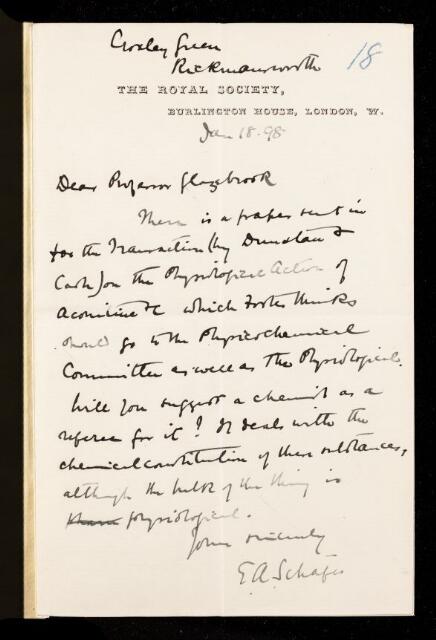 Croxley Green
Rickmansworth
18
THE ROYAL SOCIETY,
BURLINGTON HOUSE, LONDON, W.
Jan 18. 98
Dear Professor Glazebrook
There is a paper sent in
for the Transactions (by Dunstan &
Cash) on the Physiological Action of
Aconitine &c which Foster thinks
should go to the Physicochemical
Committee as well as the Physiological.
Will you suggest a chemist as a
referee for it? It deals with the
chemical constitution of these substances,
although the bulk of the thing is
physiological.
Yours sincerely
E. A. Schäfer